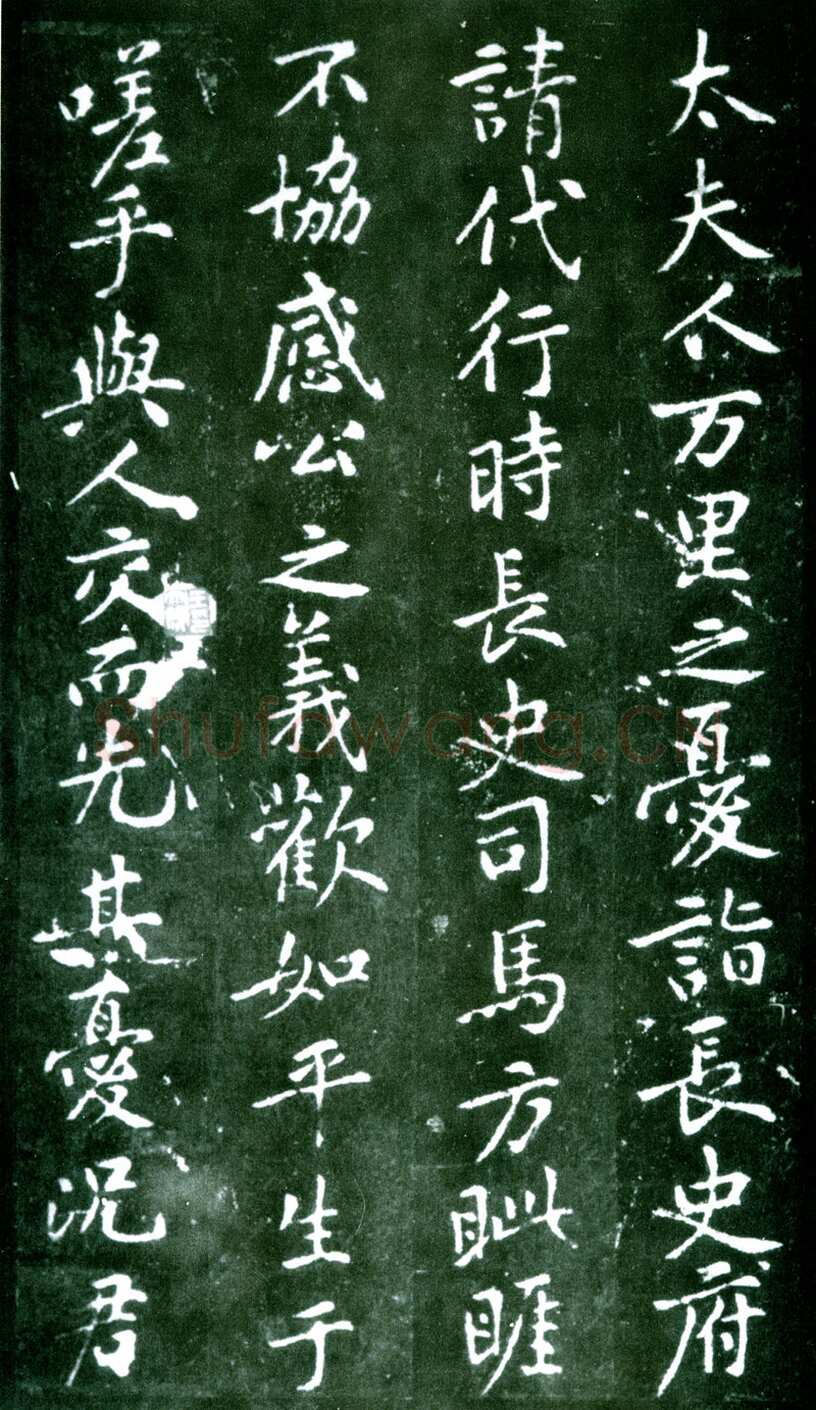 太夫人万里之憂詣長史府
請代行時長史司馬方眦睚
不協感公之義歡如平生于
嗟乎與人交而先其憂況君
Shufawang.CN